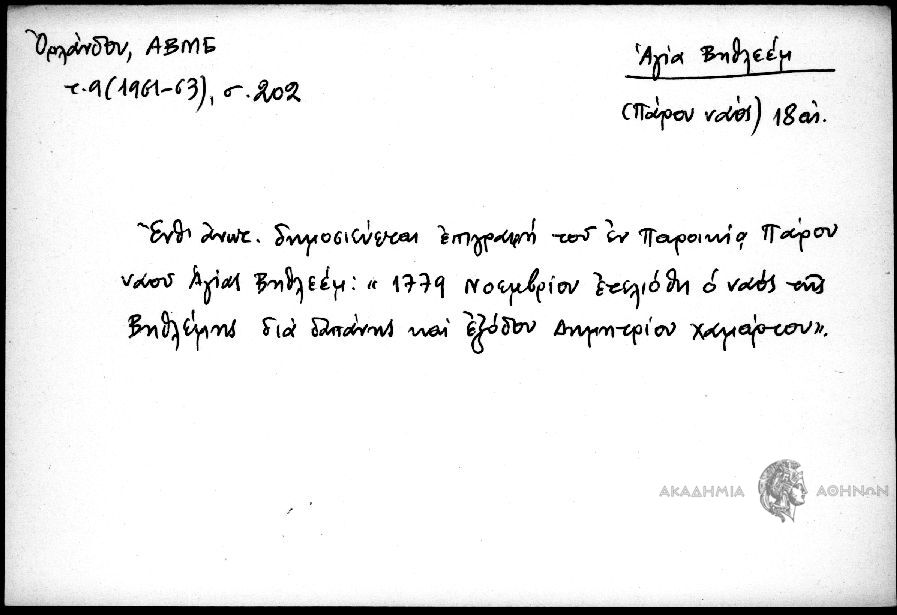 Ὀρλάνδου, ΑΒΜΕ
τ. 9 (1961-63), σ. 202
Ἁγία Βηθλεέμ
(Πάρου ναός) 18 αἰ.
Ἔνθ' ἀνωτ. δημοσιεύεται ἐπιγραφή τοῦ ἐν Παροικίᾳ Πάρου
ναοῦ Ἁγίας Βηθλεέμ: « 1779 Νοεμβρίου ἐτελιόθη ὁ ναός τῆς
Βηθλέμης διά δαπάνης καί ἐξόδου Δημητρίου Χαμάρτου».
ΑΚΑΔΗΜΙΑ ΑΘΗΝΩΝ